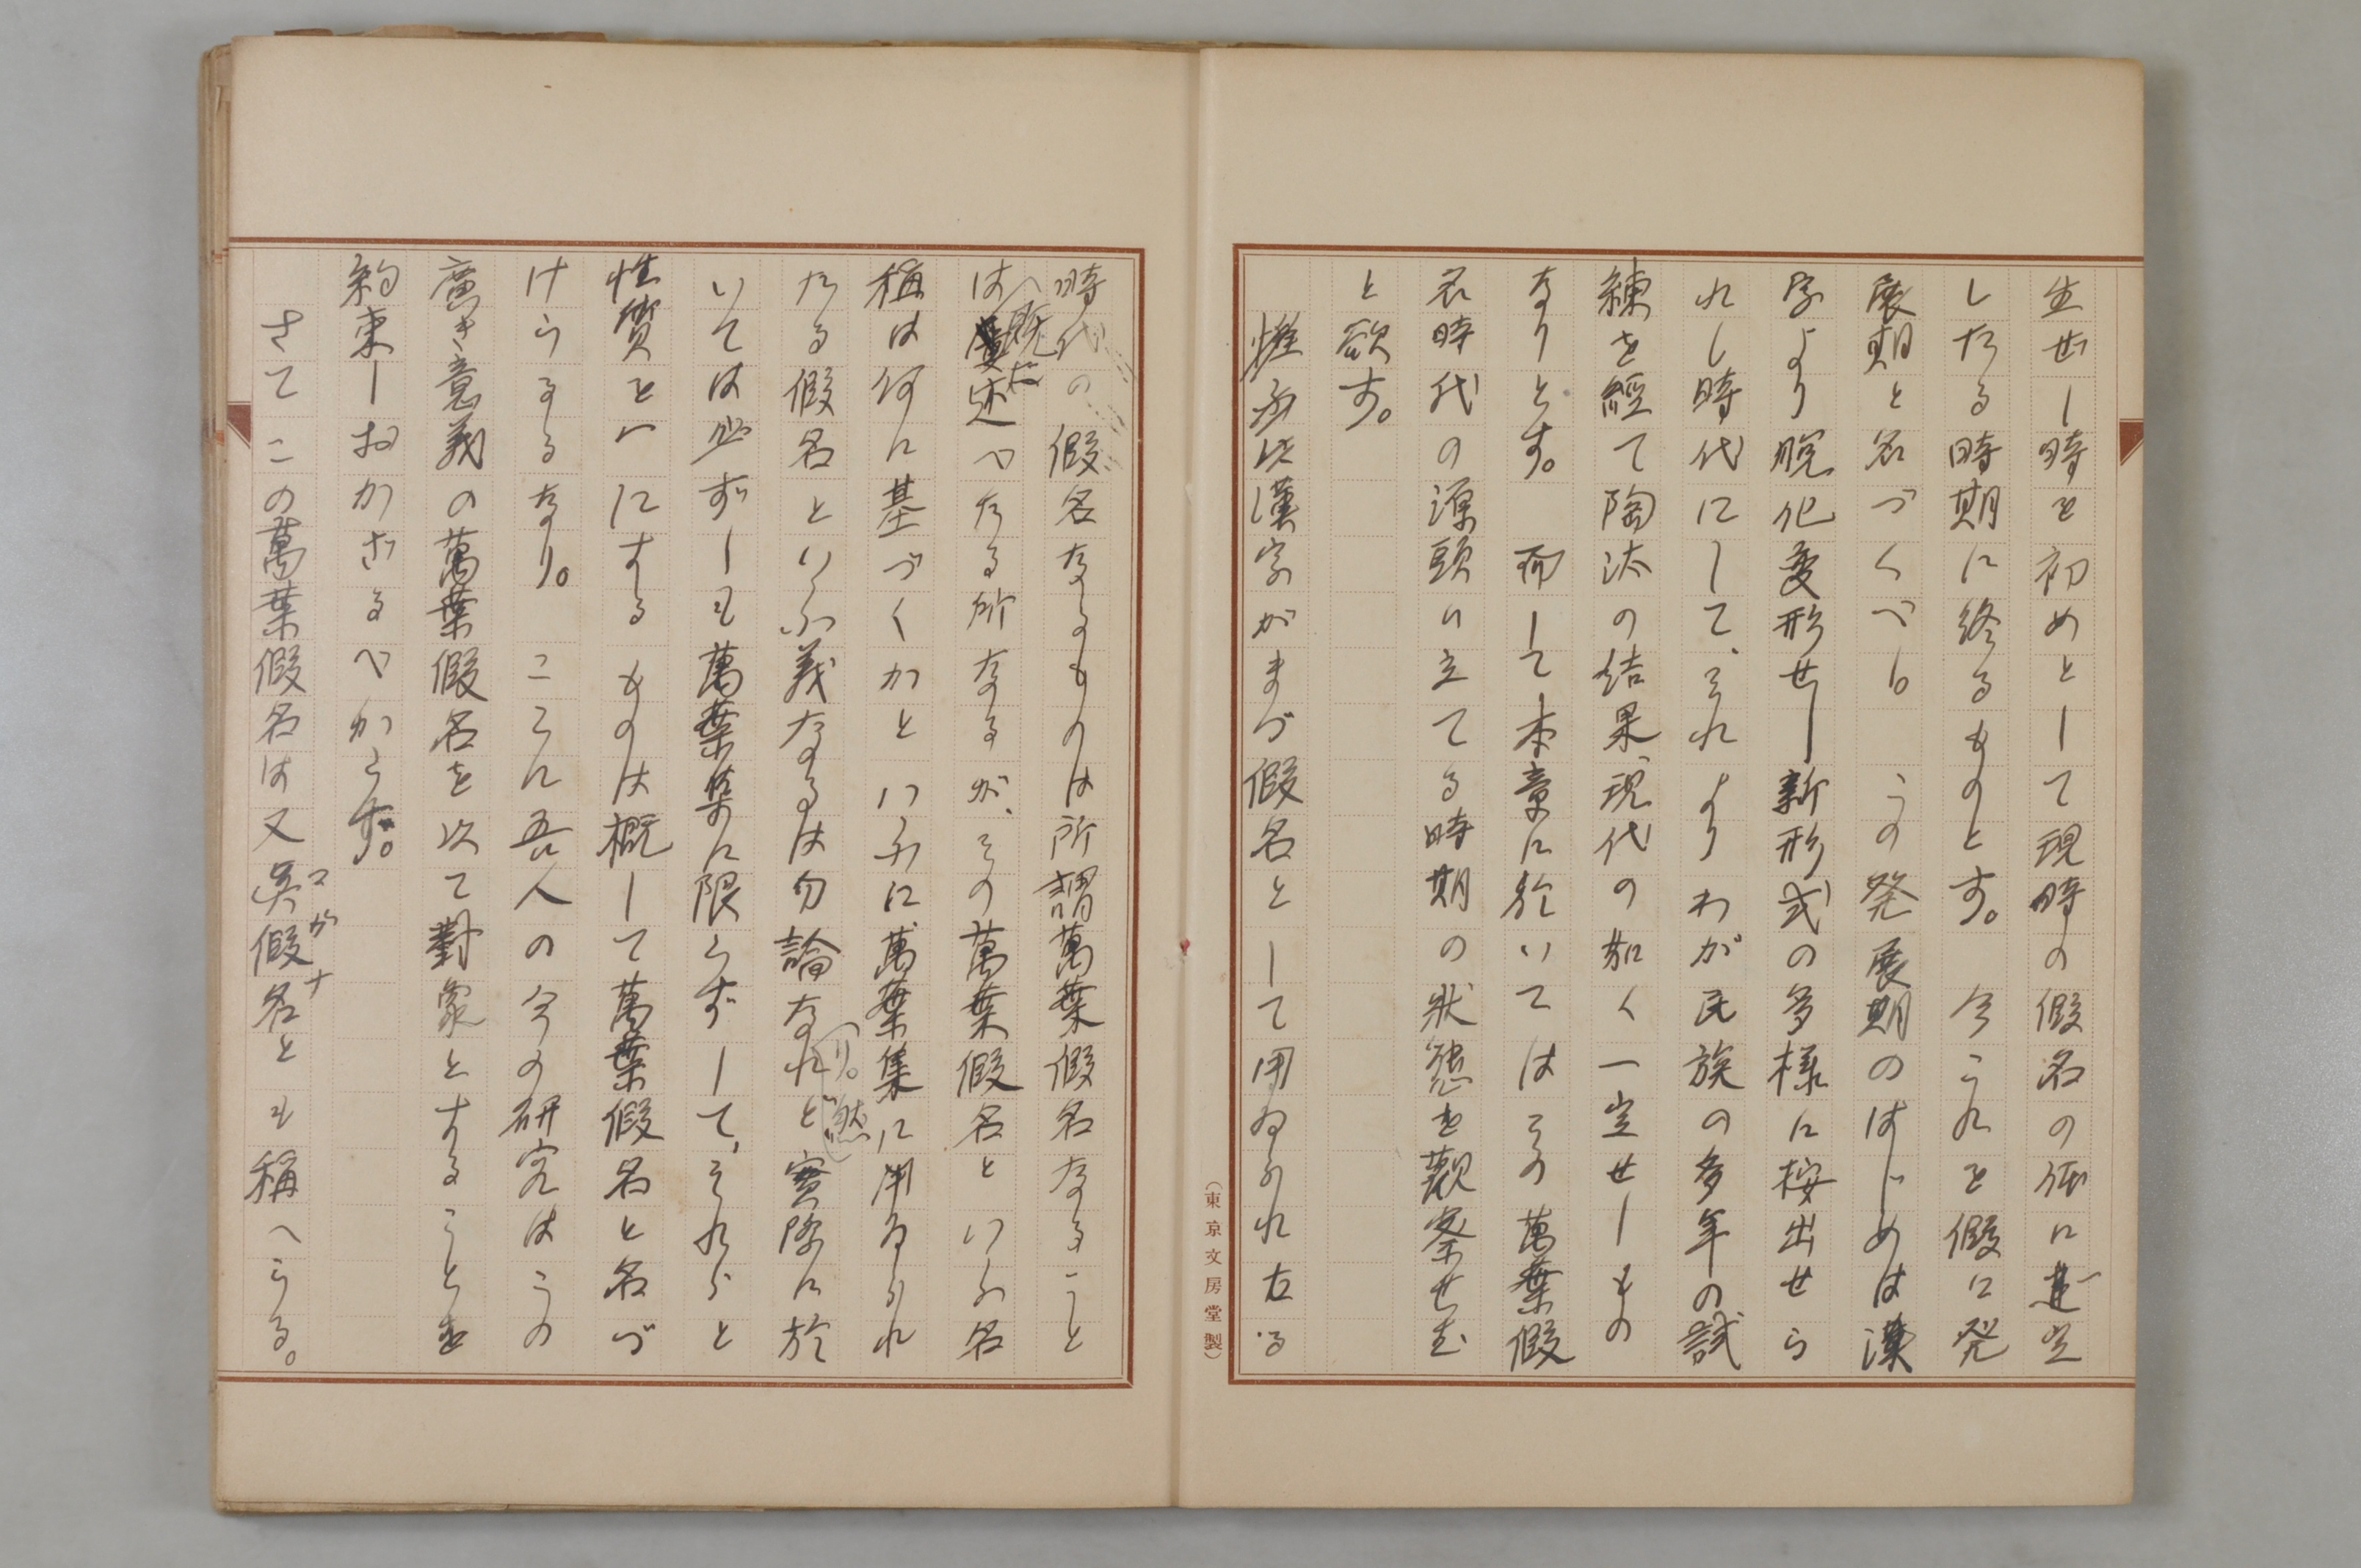 生せし時を初めとして現時の假名の体に一定
したる時期に終るものとす。 今これを假に発
展期と名づくべし。 この発展期のはじめは漢
字より脱化変形せし新形式の多様に按出せら
れし時代にして、それよりわが民族の多年の試
練を経て陶汰の結果、現代の如く一定せしもの
なりとす。 而して本章に於いてはその萬葉假
名時代の源頭に立てる時期の狀態を観察せむ
と欲す。
惟ふに漢字がまづ假名として用ゐられたる
(東京文房堂製)
時代の假名なるものは所謂萬葉假名なること
は既に述べたる所なるが、その萬葉假名といふ名
稱は何に基づくかといふに、萬葉集に用ゐられ
たる假名といふ義なるは勿論なれど實際に於
(り。然)
いては必ずしも萬葉集に限らずして、それらと
性質を一にするものは概して萬葉假名と名づ
けらるるなり。 ここに吾人の今の研究はこの
廣き意義の萬葉假名を以て對象とすることを
約束しおかざるべからず。
さてこの萬葉假名は又眞假名とも稱へらる。
マガナ